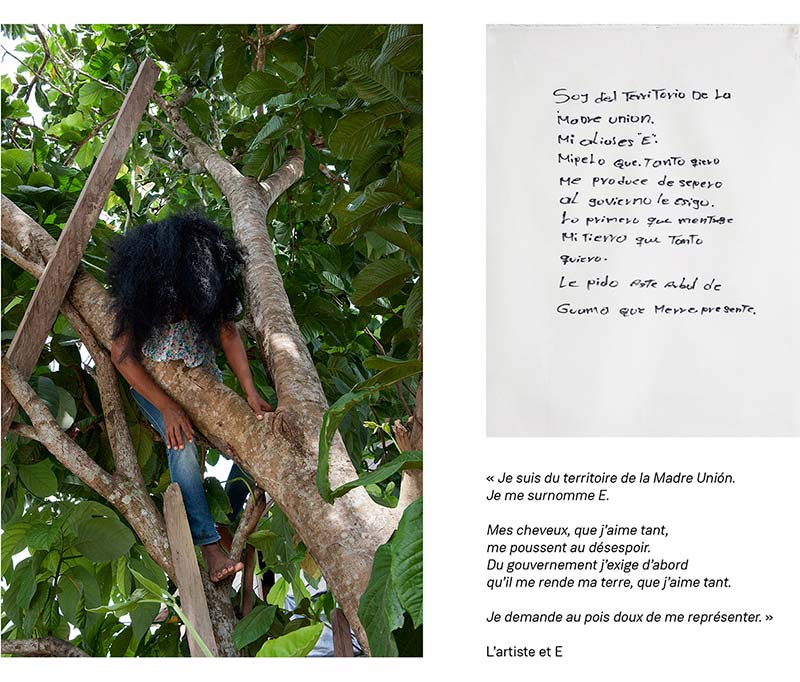 Soy del Territorio De La
Madre union.
Mi alias es "E".
Mi pelo que. Tanto qiero
Me produce de sepero
al govierno le esigo.
Lo primero que mentrege
Mi Tierra que Tanto
quiero.
Le pido este arbul de
Guamo que Merrepresente.
« Je suis du territoire de la Madre Unión.
Je me surnomme E.
Mes cheveux, que j’aime tant,
me poussent au désespoir.
Du gouvernement j’exige d’abord
qu’il me rende ma terre, que j’aime tant.
Je demande au pois doux de me représenter. »
L’artiste et E